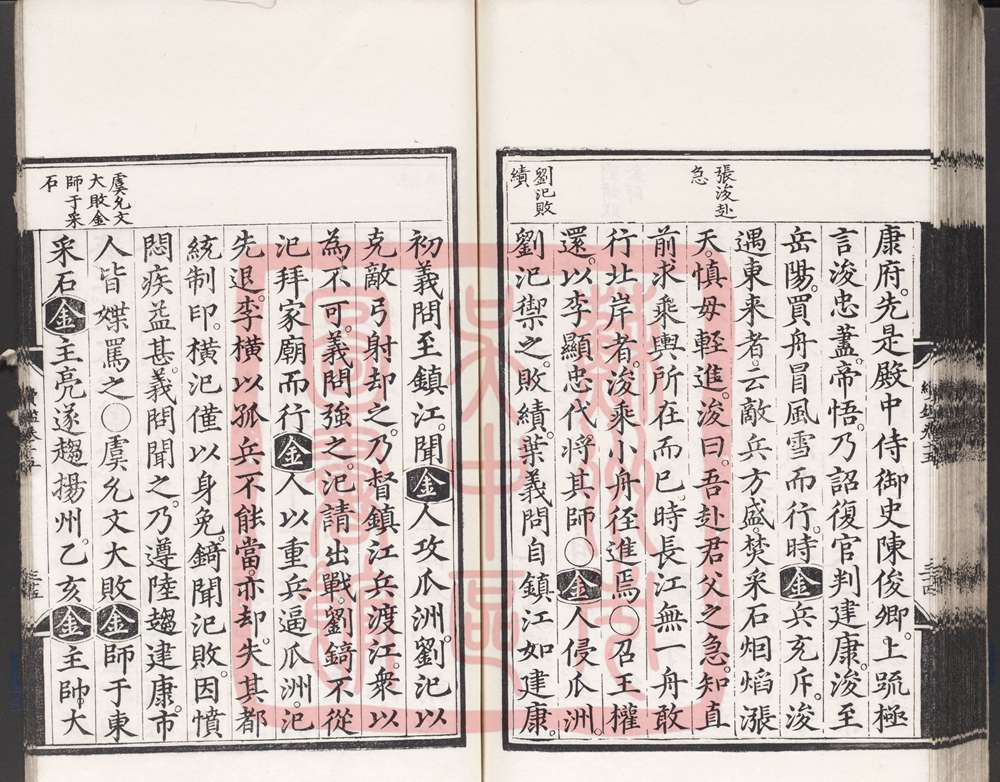 張浚赴
急
劉汜敗
績
康府。先是殿中侍御史陳俊卿。上疏極
言浚忠藎。帝悟。乃詔復官判建康。浚至
岳陽。買舟冒風雪而行。時金兵充斥。浚
遇東来者云敵兵方盛。焚采石烟焰漲
天。慎毋輕進。浚曰。吾赴君父之急。知直
前求乘輿所在而已。時長江無一舟敢
行北岸者。浚乘小舟徑進焉。○召王權
還。以李顯忠代將其師○金人侵瓜洲。
劉汜禦之。敗績。葉義問自鎮江如建康。
虞允文
大敗金
師于采
石
初義問至鎮江。聞金人攻瓜洲。劉汜以
克敵弓射却之。乃督鎮江兵渡江。衆以
為不可。義問強之。汜請出戰。劉錡不從
汜拜家廟而行。金人以重兵逼瓜洲。汜
先退。李橫以孤兵不能當。亦却。失其都
統制印。橫汜僅以身免。錡聞汜敗。因憤
悶疾益甚。義問聞之。乃遵陸趨建康。市
人皆媟罵之○虞允文大敗金師于東
采石金主亮遂趨揚州。乙亥金主帥大